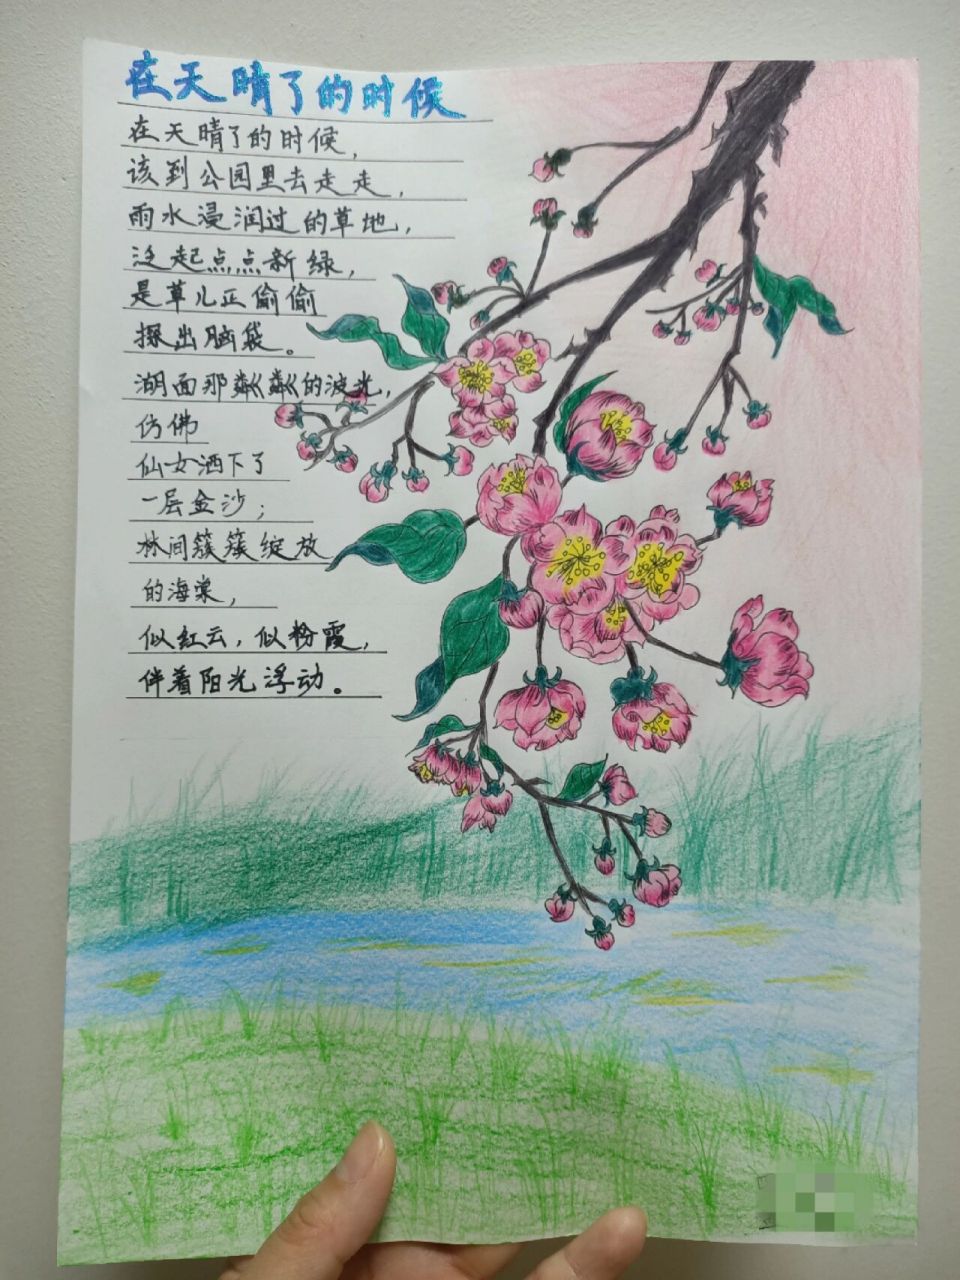 在天晴了的时候
在天晴了的时候，
该到公园里去走走，
雨水浸润过的草地，
泛起点点新绿，
是草儿正偷偷
探出脑袋。
湖面那粼粼的波光，
仿佛
仙女洒下了
一层金沙；
林间簇簇绽放
的海棠，
似红云，似粉霞，
伴着阳光浮动。